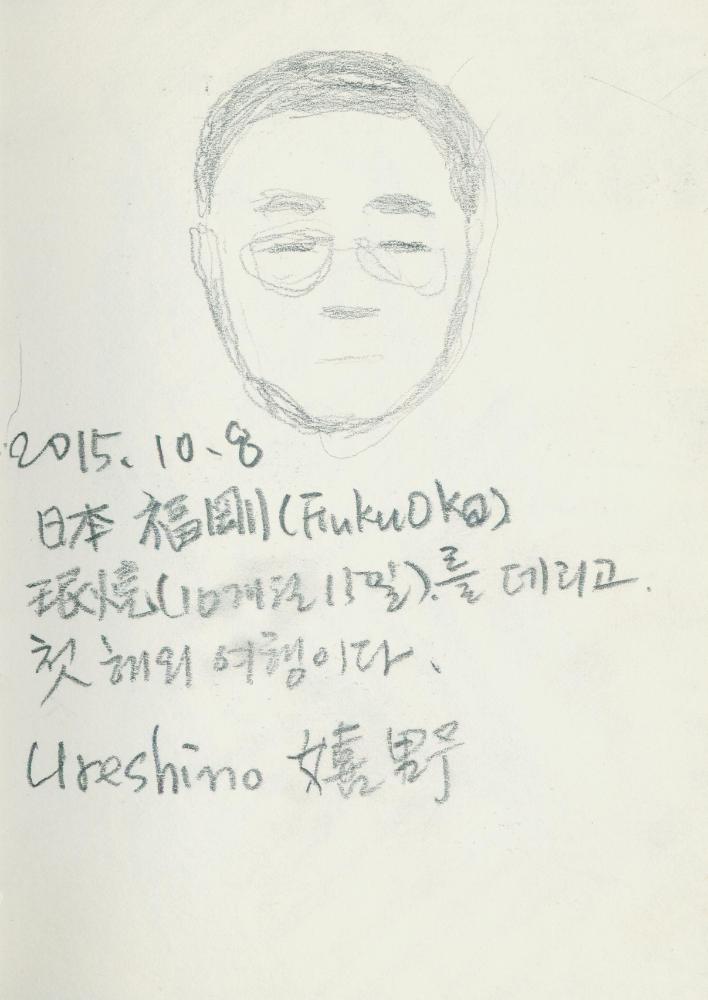 2015. 10. 8
日本 福剛 (FukuOka)
(10개월 15일)를 데리고.
첫 해외 여행이다.
Ureshino 嬉野